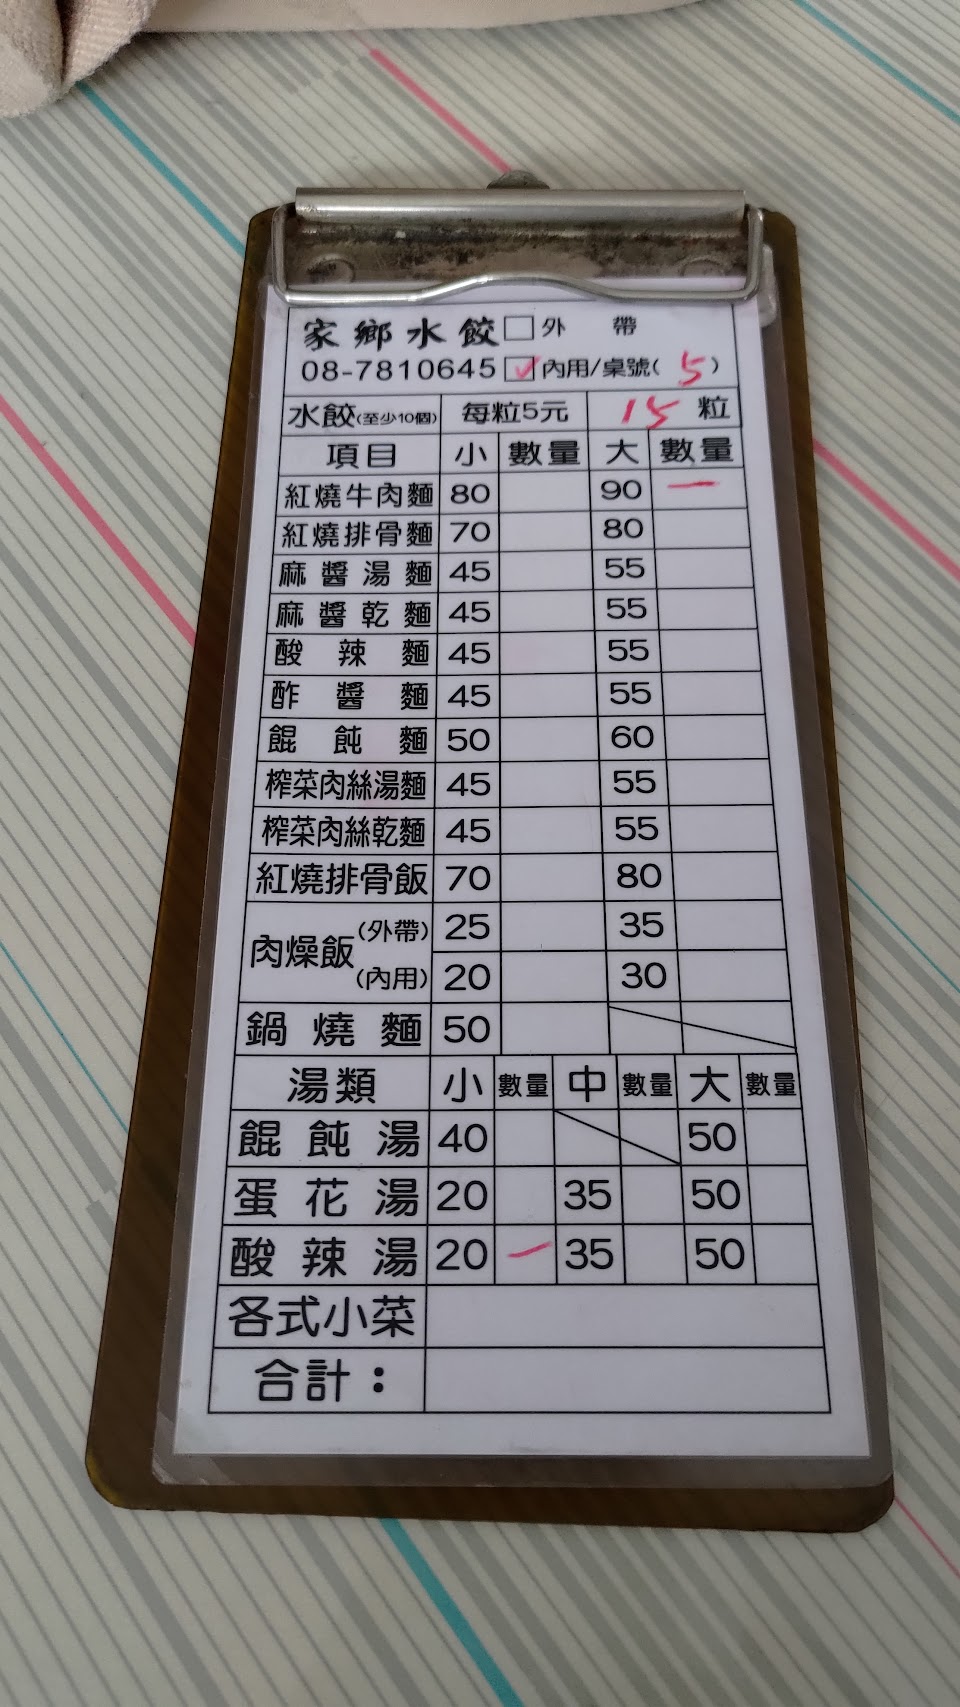 家鄉水餃 □外 帶
08-7810645 ☑內用/桌號( 5 )
水餃(至少10個) 每粒5元 15 粒
項目 小 數量 大 數量
紅燒牛肉麵 80 90 一
紅燒排骨麵 70 80
麻醬湯麵 45 55
麻醬乾麵 45 55
酸辣麵 45 55
酢醬麵 45 55
餛飩麵 50 60
榨菜肉絲湯麵 45 55
榨菜肉絲乾麵 45 55
紅燒排骨飯 70 80
肉燥飯 (外帶) 25 35
(內用) 20 30
鍋燒麵 50
湯類 小 數量 中 數量 大 數量
餛飩湯 40 50
蛋花湯 20 35 50
酸辣湯 20 一 35 50
各式小菜
合計：